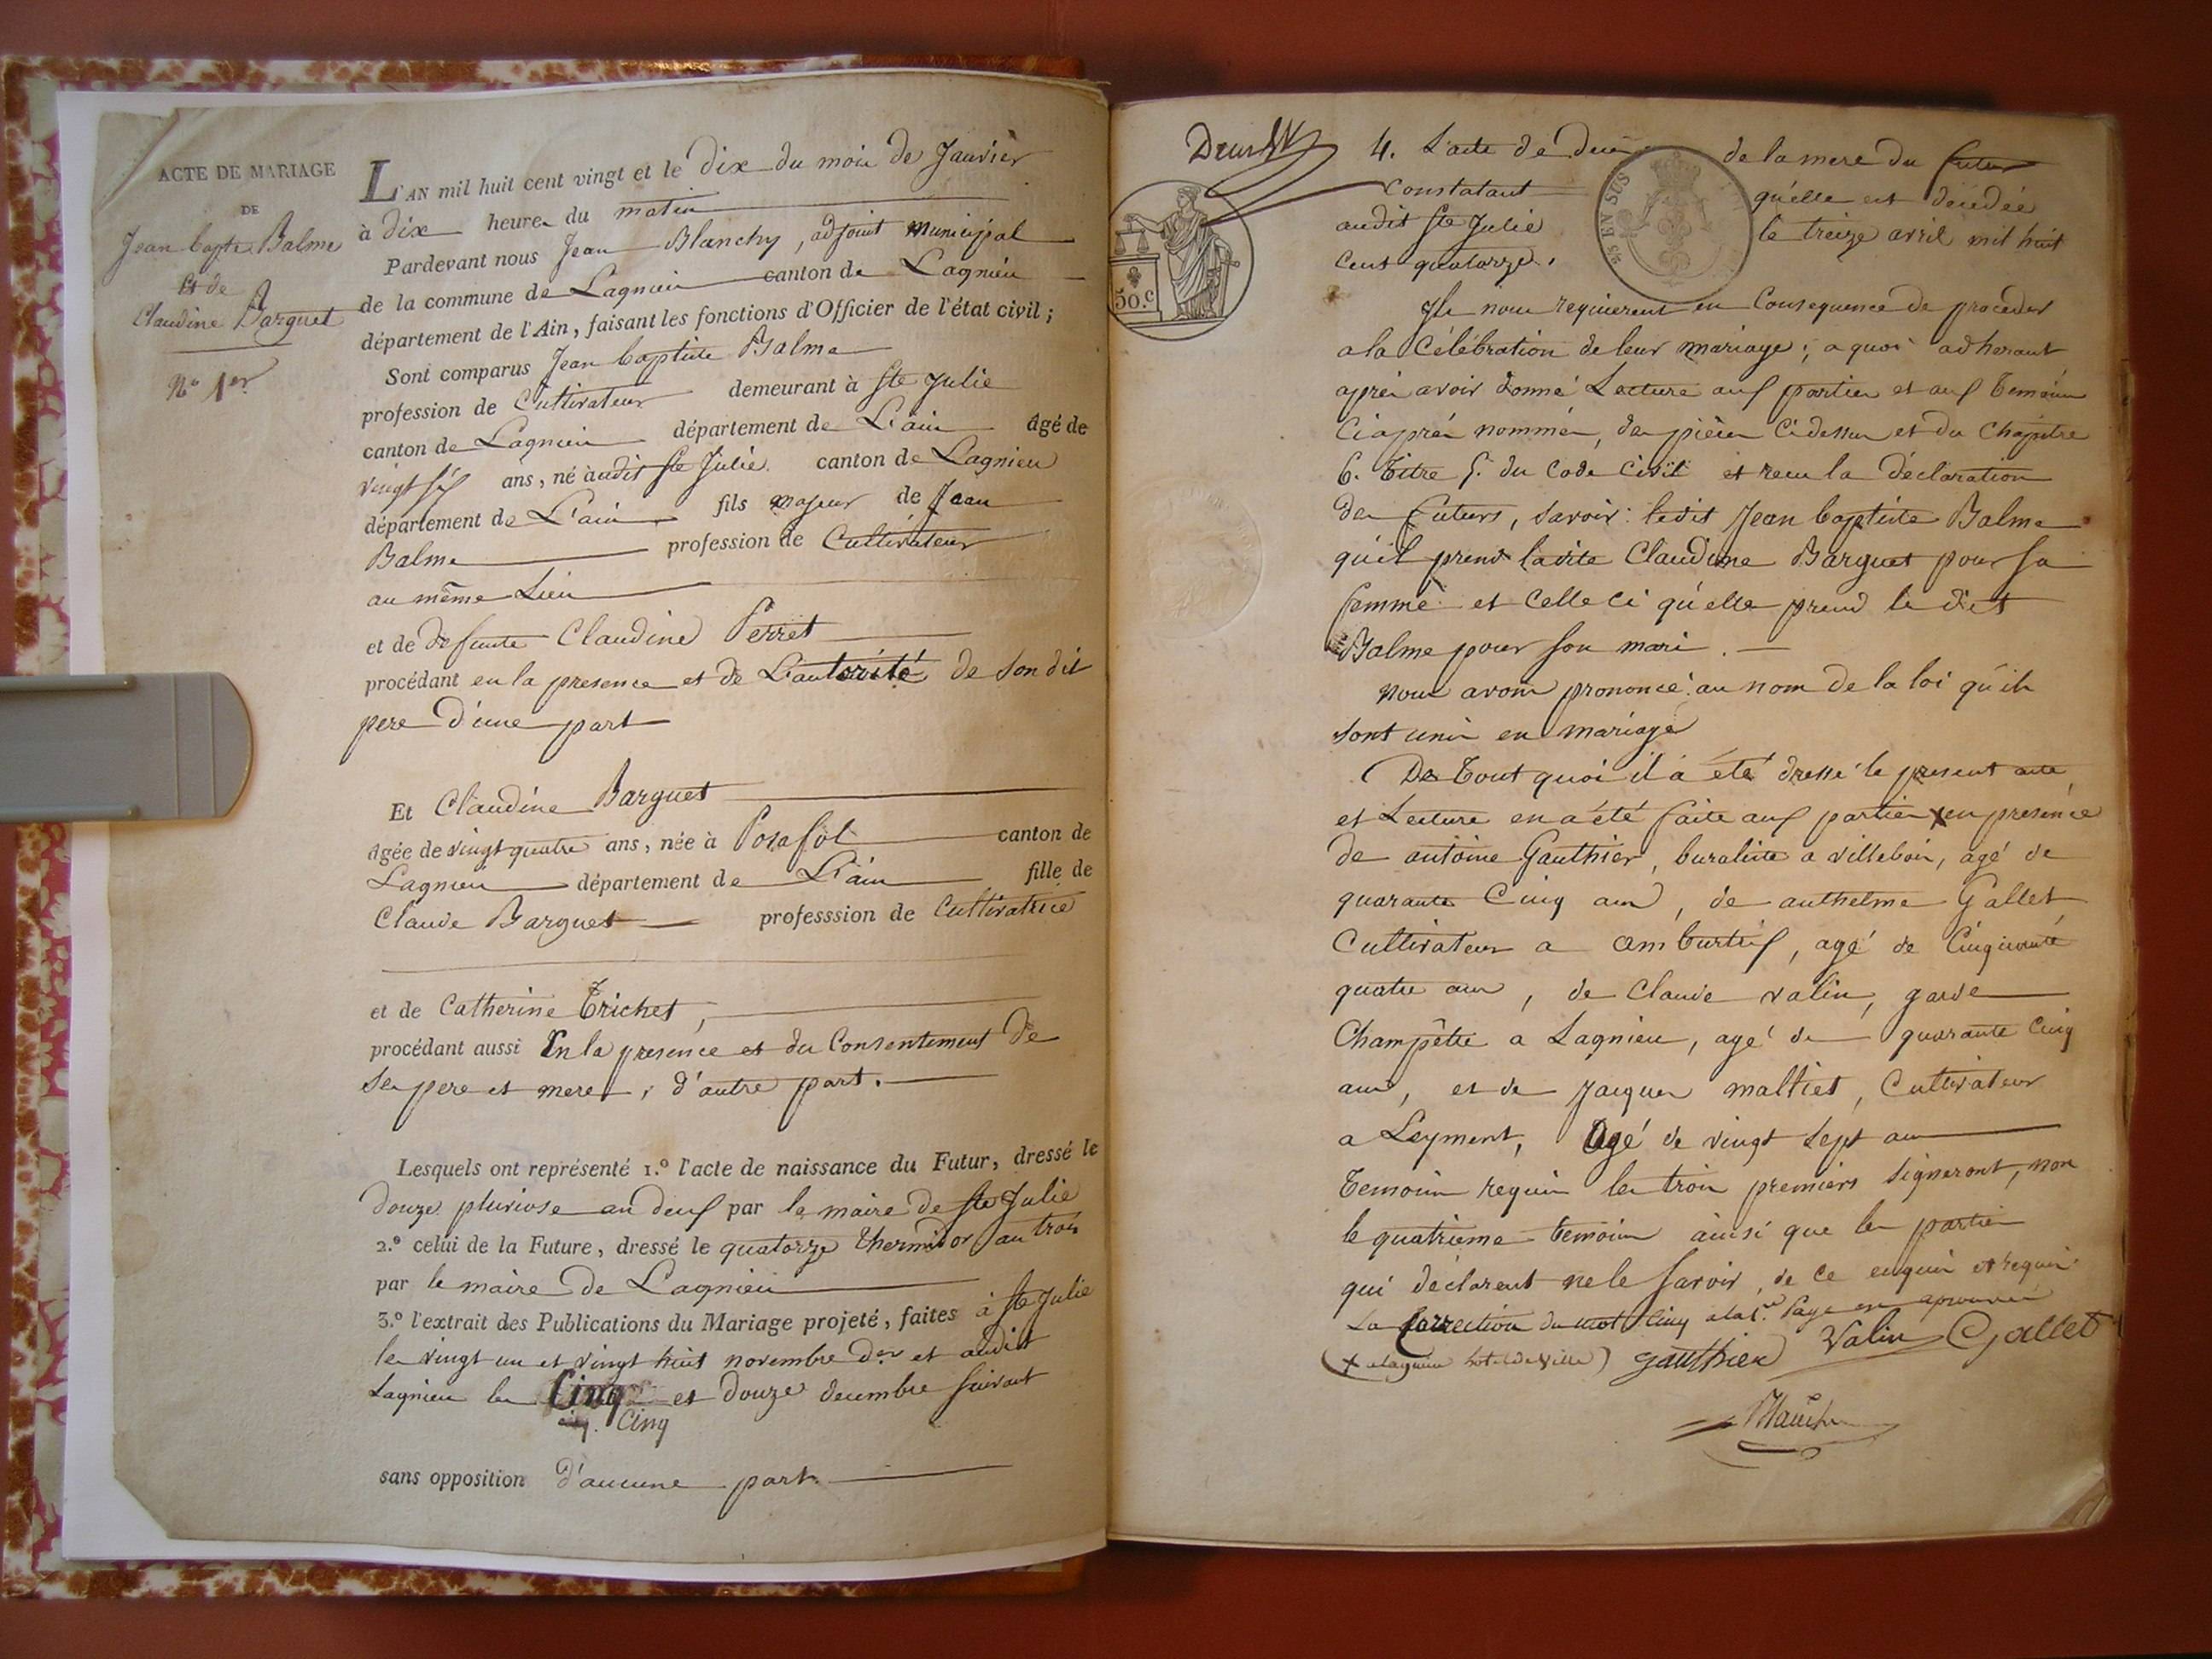 ACTE DE MARIAGE
DE
Jean bapte Balme
Et de
Claudine Barguet
No 1er
L'AN mil huit cent vingt et le dix du mois de Janvier
à dix heures du matin
Pardevant nous Jean Blanchy, adjoint municipal
de la commune de Lagnieu canton de Lagnieu
département de l'Ain, faisant les fonctions d'Officier de l'état civil;
Sont comparus Jean baptiste Balme
profession de Cultivateur demeurant à Ste Julie
canton de Lagnieu département de L'ain âgé de
vingt six ans, né audit Ste Julie canton de Lagnieu
département de L'ain fils majeur de Jean
Balme profession de Cultivateur
au même Lieu
et de defunte Claudine Perret
procédant en la presence et de L'autorité de son dit
pere d'une part
Et Claudine Barguet
agée de vingt quatre ans, née à Posafol canton de
Lagnieu département de L'ain fille de
Claude Barguet professsion de Cultivatrice
et de Catherine Trichet,
procédant aussi En la presence et du Consentement de
ses pere et mere, d'autre part.
Lesquels ont représenté 1.º l'acte de naissance du Futur, dressé le
douze pluviose an deux par le maire de Ste Julie
2.º celui de la Future, dressé le quatorze thermidor an trois
par le maire de Lagnieu
3.º l'extrait des Publications du Mariage projeté, faites à Ste Julie
les vingt un et vingt huit novembre der et audit
Lagnieu les Cinq et douze decembre suivant
Cinq
sans opposition d'aucune part
Deux
4. L'acte de de la mere du futur
Constatant qu'elle est décedée
audit Ste Julie le treize avril mil huit
cent quatorze.
EN SUS
50.c
Ils nous requierent en Consequence de proceder
a la Célébration de leur mariage; a quoi adherant
après avoir donné Lecture aux parties et aux temoins
Ciaprès nommés, des pièces Cidessus et du Chapitre
6. titre 5. du Code Civil et recu la déclaration
des futurs, savoir: ledit Jean baptiste Balme
qu'il prend ladite Claudine Barguet pour sa
femme et Celle ci qu'elle prend le dit
Balme pour son mari.
nous avons prononcé au nom de la loi qu'ils
sont unis en mariage
De tout quoi il a été dressé le present acte
et Lecture en a été faite aux parties x en presence
de antoine Gauthier, buraliste a villebois, agé de
quarante Cinq ans, de anthelme Gallet
Cultivateur a ambutrix, agé de Cinquante
quatre ans, de Claude valin, garde
Champêtre a Lagnieu, agé de quarante Cinq
ans, et de Jacques malliet, Cultivateur
a Leyment, Agé de vingt sept ans
temoins requis les trois premiers signeront, non
le quatrieme temoin ainsi que les parties
qui déclarent ne le savoir, de ce enquis et requis
La Correction du mot Cinq a la 1re Page est aprouvée
(x a Lagnieu hotel de ville) Gauthier Valin Gallet
Blanchy